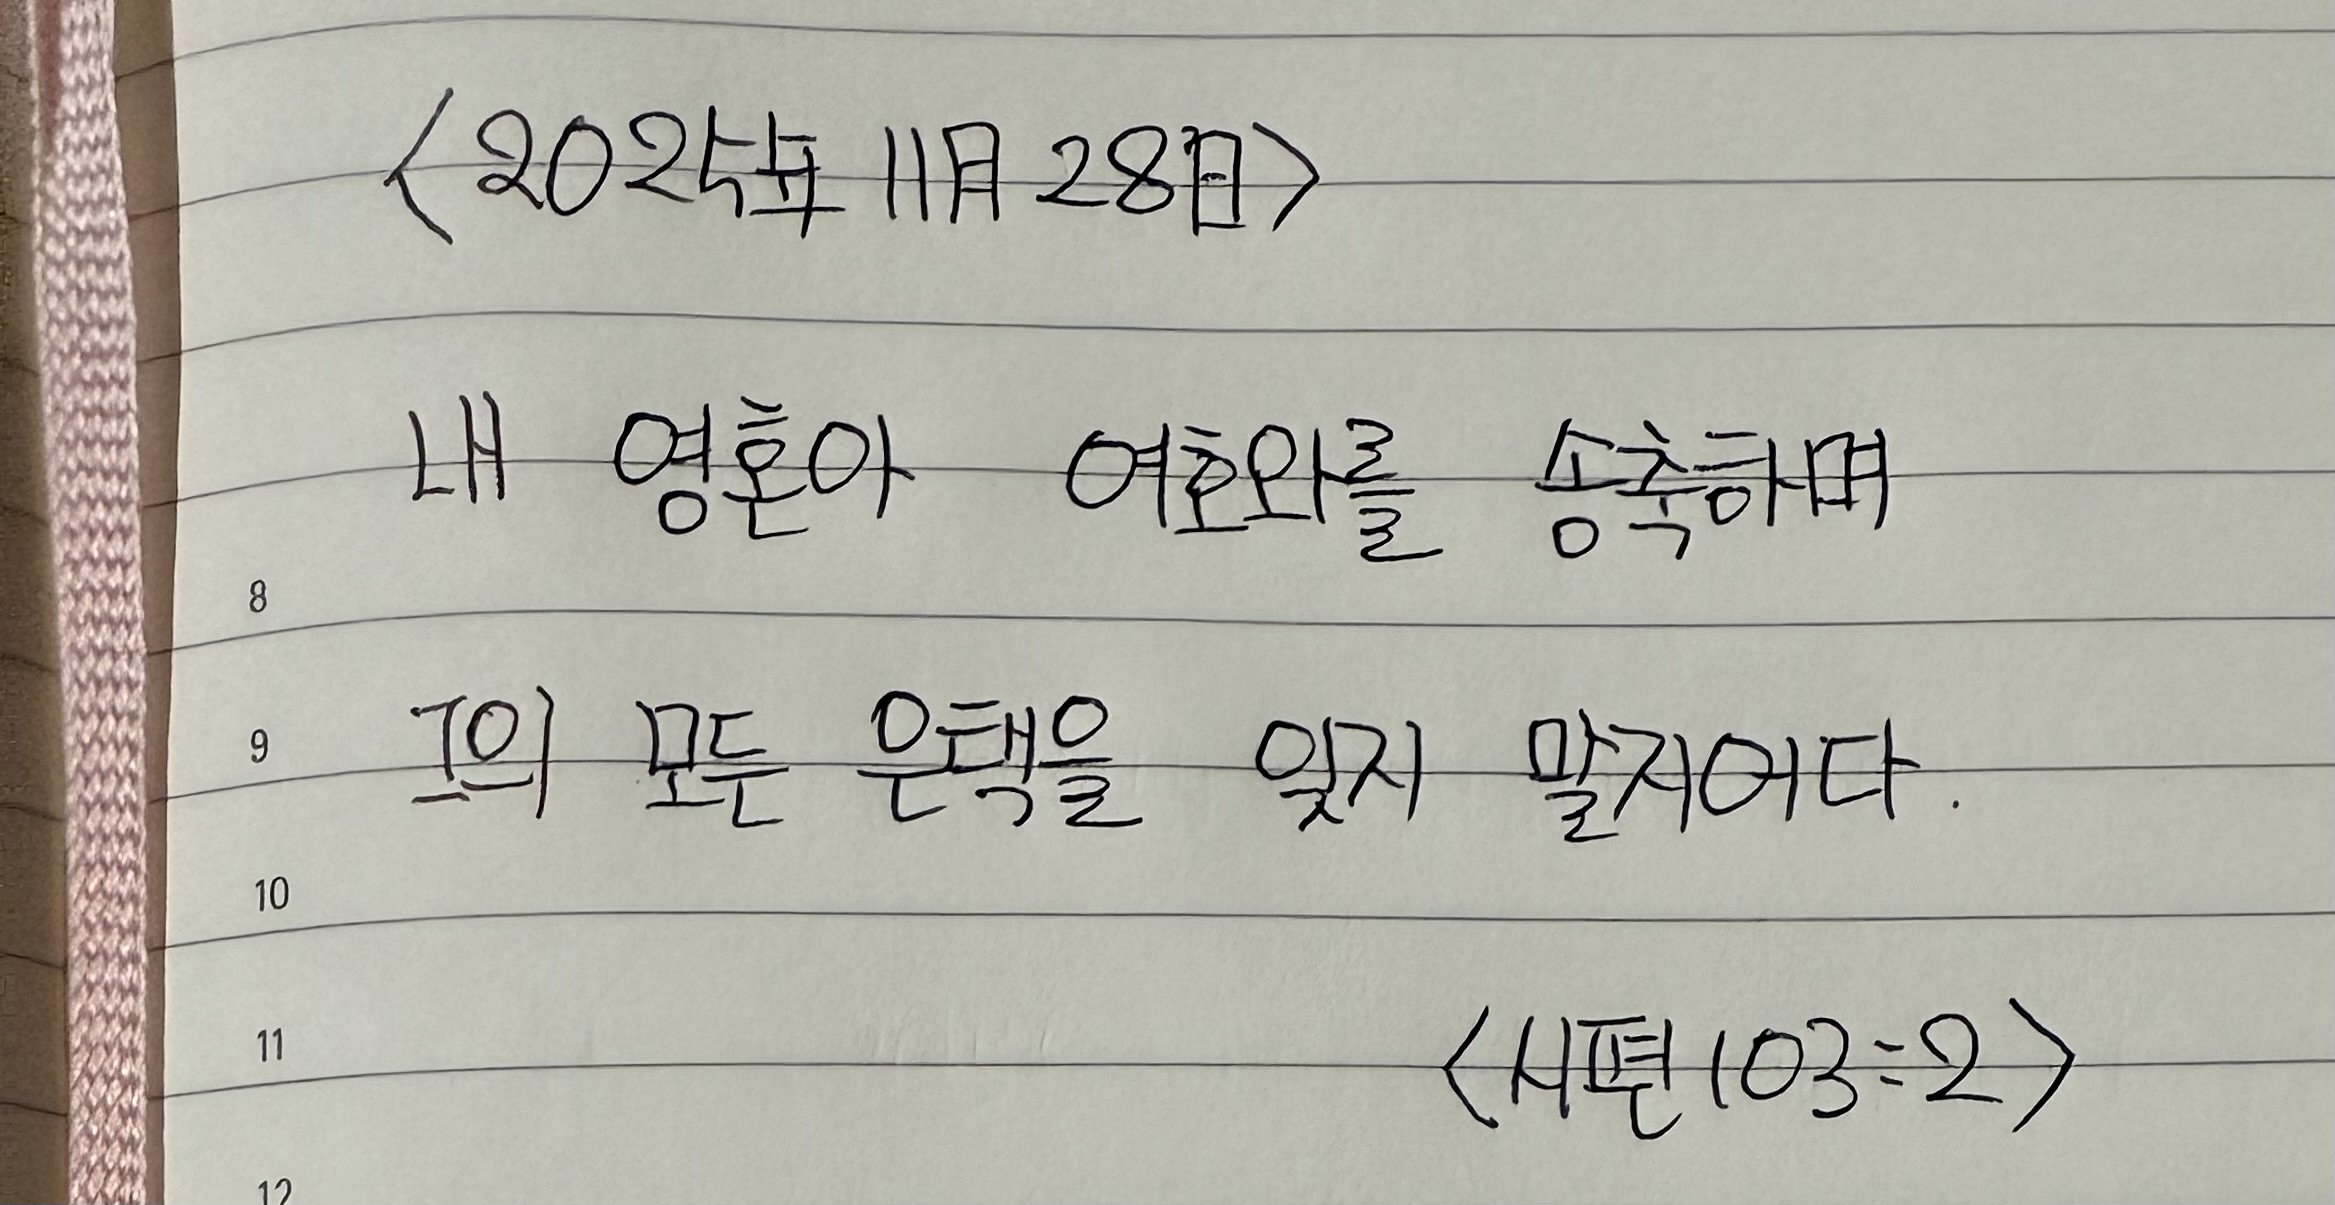 <2025年 11月 28日>
내 영혼아 여호와를 송축하며
8
그의 모든 은택을 잊지 말지어다.
9
10
<시편 103:2>
11
12